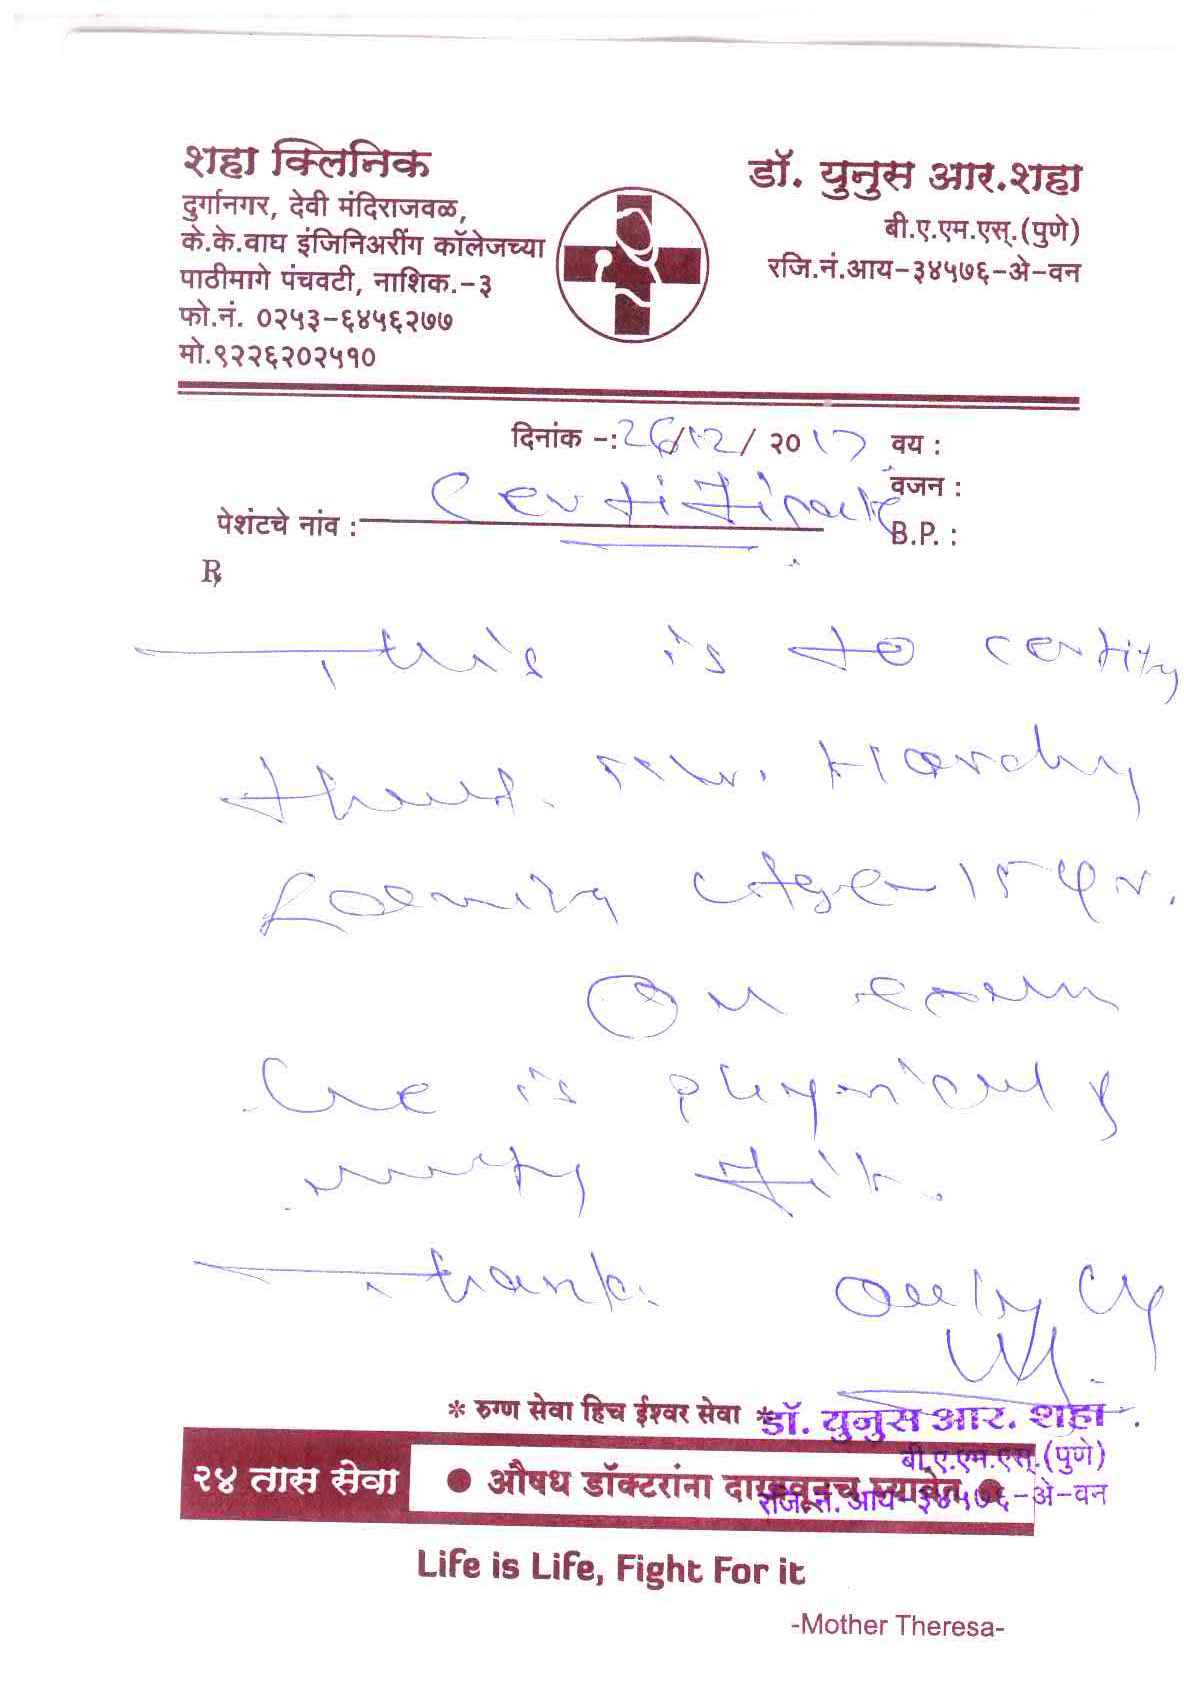 शहा क्लिनिक
दुर्गानगर, देवी मंदिराजवळ,
के.के.वाघ इंजिनिअरींग कॉलेजच्या
पाठीमागे पंचवटी, नाशिक.-३
फो.नं. ०२५३-६४५६२७७
मो.९२२६२०२५१०
डॉ. युनुस आर.शहा
बी.ए.एम.एस्.(पुणे)
रजि.नं.आय-३४५७६-अे-वन
दिनांक -: 26/12/ २०17 वय :
वजन :
Certificate
पेशंटचे नांव : B.P. :
℞
This is to certify
that. Mr.
Age 15 yr.
On exam
he is physically
fit.
Thank.
* रुग्ण सेवा हिच ईश्वर सेवा *
डॉ. युनुस आर. शहा
बी.ए.एम.एस्.(पुणे)
रजि.नं. आय-३४५७६-अे-वन
२४ तास सेवा
● औषध डॉक्टरांना दाखवूनच घ्यावेत ●
Life is Life, Fight For it
-Mother Theresa-